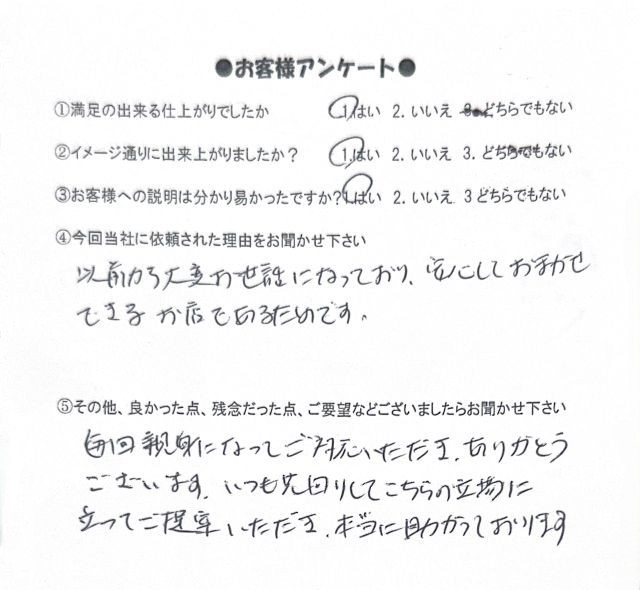 ●お客様アンケート●
①満足の出来る仕上がりでしたか 1.はい 2.いいえ 3.どちらでもない
②イメージ通りに出来上がりましたか？ 1.はい 2.いいえ 3.どちらでもない
③お客様への説明は分かり易かったですか？1.はい 2.いいえ 3どちらでもない
④今回当社に依頼された理由をお聞かせ下さい
以前から大変お世話になっており、安心しておまかせ
できるお店であるためです。
⑤その他、良かった点、残念だった点、ご要望などございましたらお聞かせ下さい
毎回親身になってご対応いただき、ありがとう
ございます。いつも先回りしてこちらの立場に
立ってご提案いただき、本当に助かっております